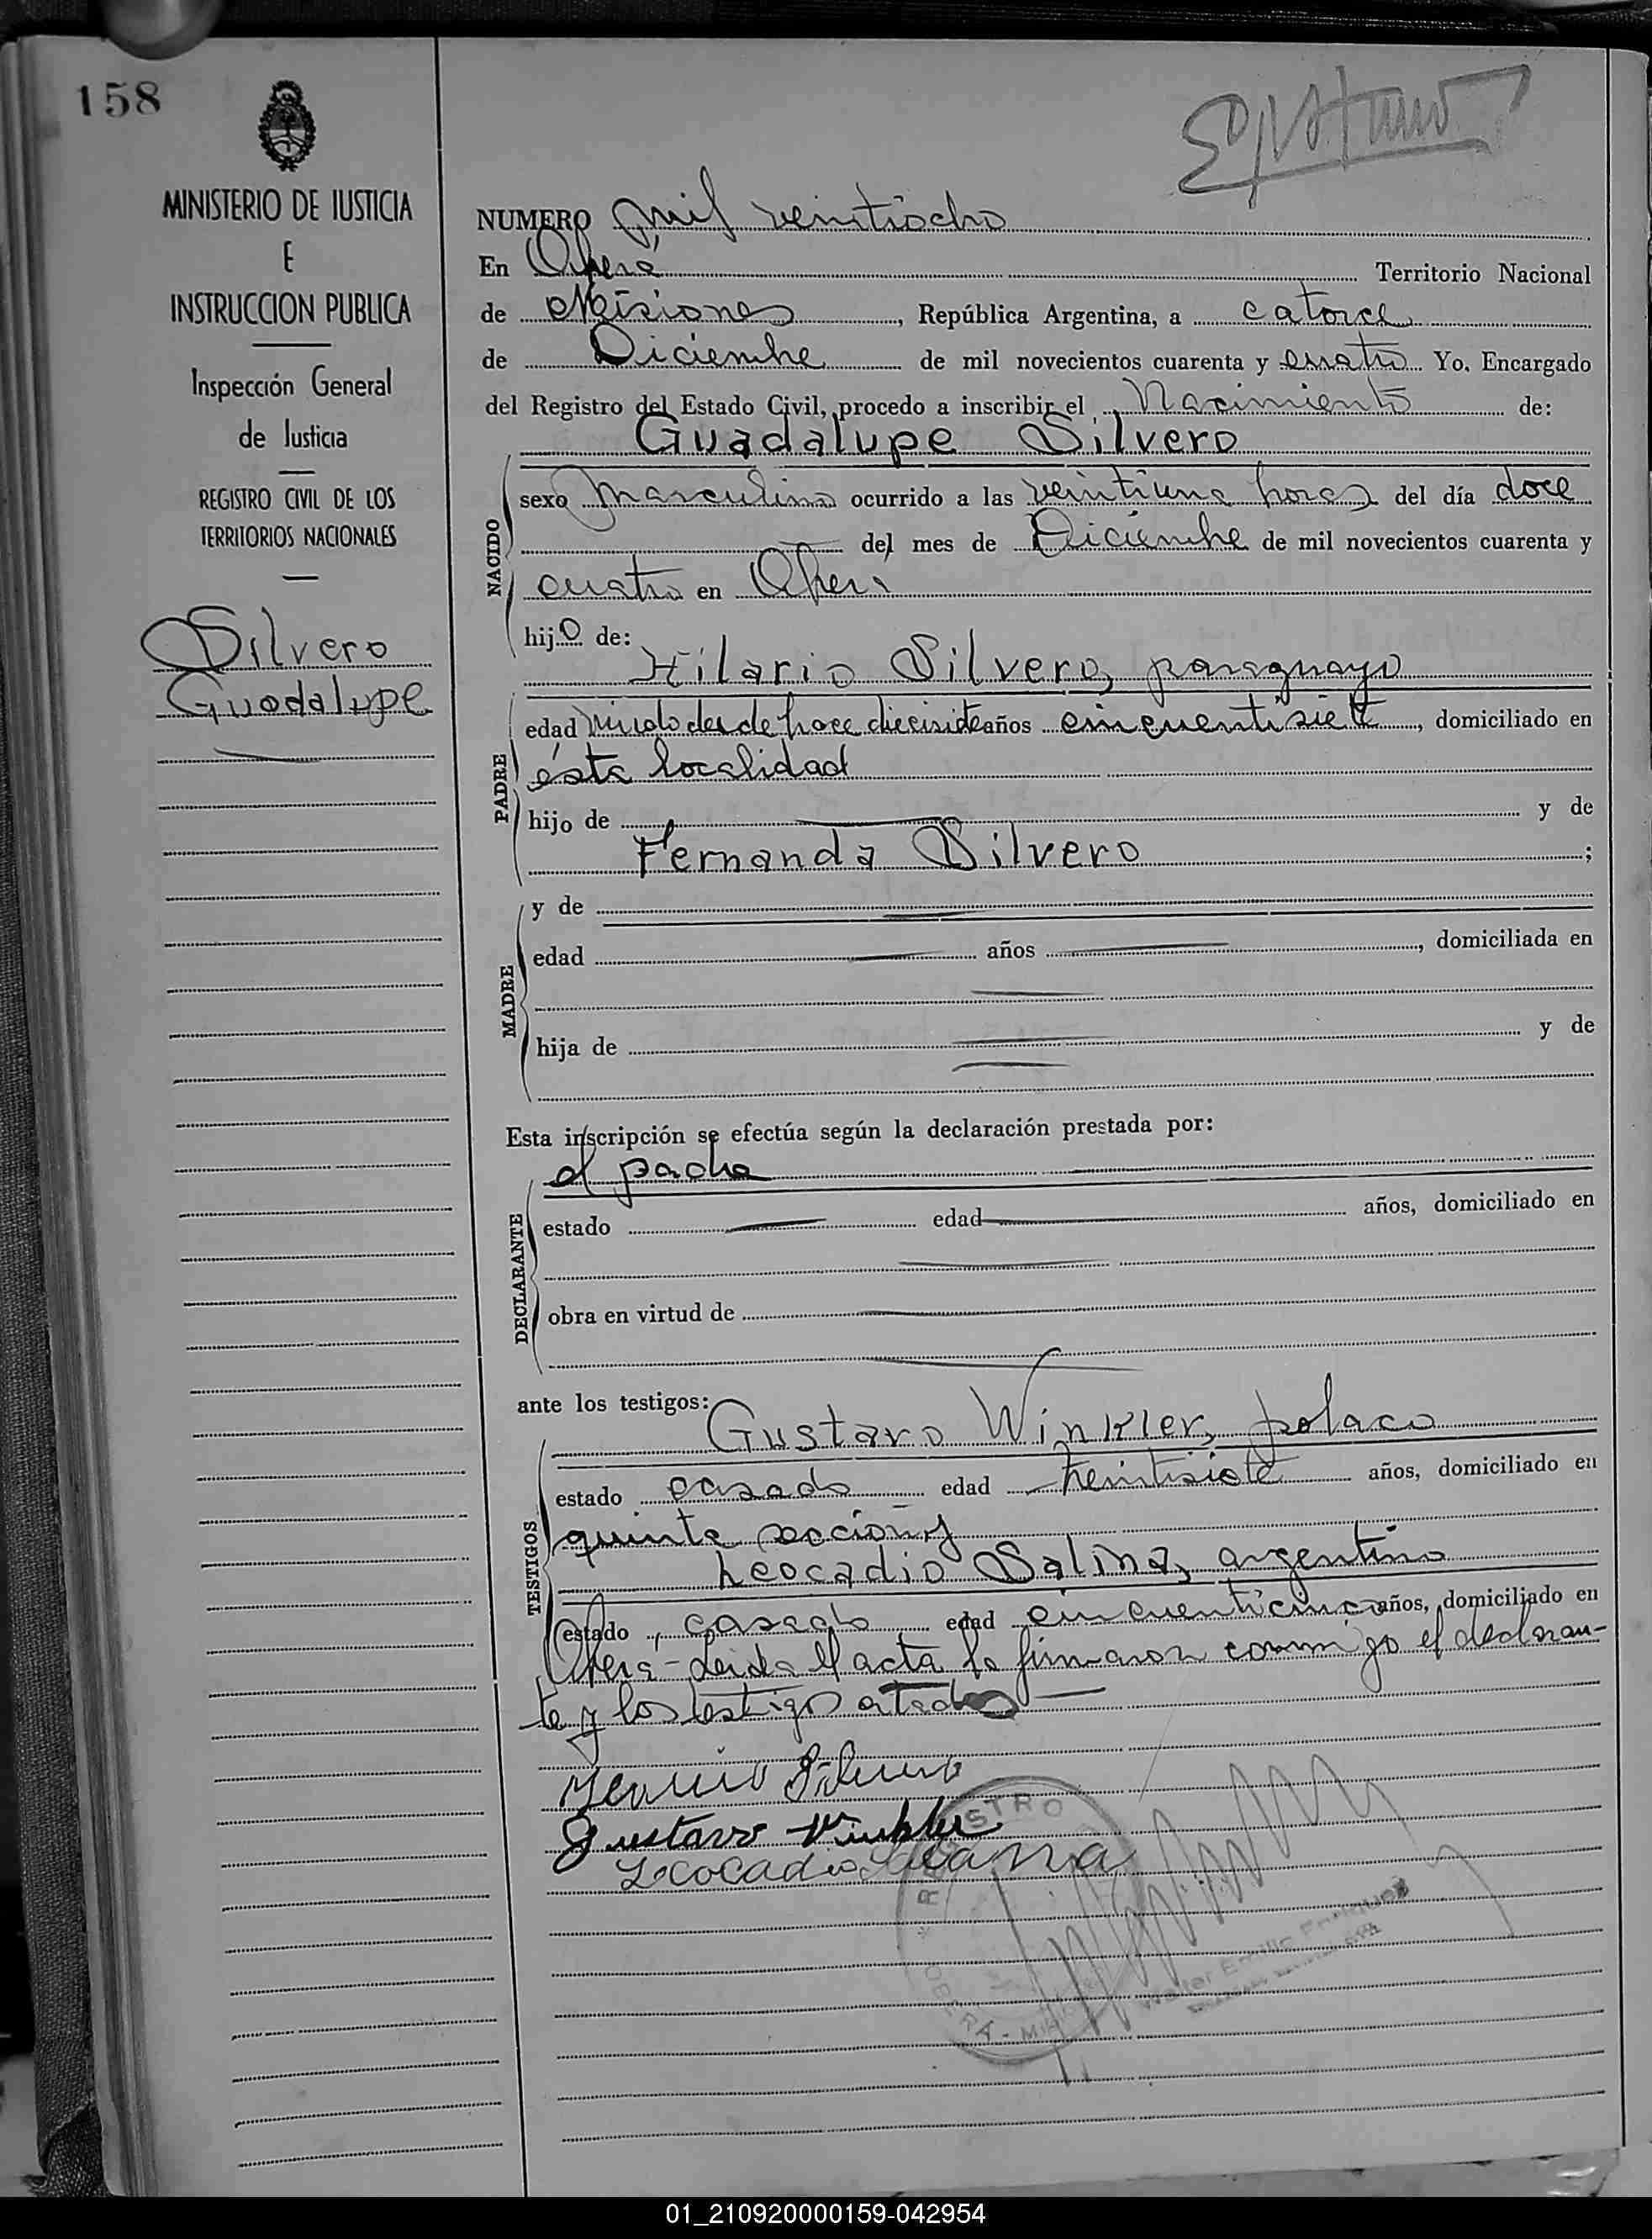 158
MINISTERIO DE JUSTICIA
E
INSTRUCCION PUBLICA
Inspección General
de Justicia
REGISTRO CIVIL DE LOS
TERRITORIOS NACIONALES
Silvero
Guadalupe
NUMERO mil veintiocho
En Oberá Territorio Nacional
de Misiones, República Argentina, a catorce
de Diciembre de mil novecientos cuarenta y cuatro Yo, Encargado
del Registro del Estado Civil, procedo a inscribir el Nacimiento de:
Guadalupe Silvero
NACIDO
sexo masculino ocurrido a las veintiuna horas del día doce
del mes de Diciembre de mil novecientos cuarenta y
cuatro en Oberá
hijo de:
Hilario Silvero, paraguayo
PADRE
edad viudo desde hace diecisiete años cincuentisiete, domiciliado en
ésta localidad
hijo de y de
Fernanda Silvero ;
MADRE
y de
edad años , domiciliada en
hija de y de
Esta inscripción se efectúa según la declaración prestada por:
el padre
DECLARANTE
estado edad años, domiciliado en
obra en virtud de
ante los testigos:
Gustavo Winkler, polaco
TESTIGOS
estado casado edad treintisiete años, domiciliado en
quinta sección y
Leocadio Salina, argentino
estado casado edad cincuenticinco años, domiciliado en
Oberá - Leida el acta la firmaron conmigo el declaran-
te y los testigos
Silvero
Gustavo Winkler
Leocadio
REGISTRO
OBERÁ - MISIONES
Walter Emilio
01_210920000159-042954